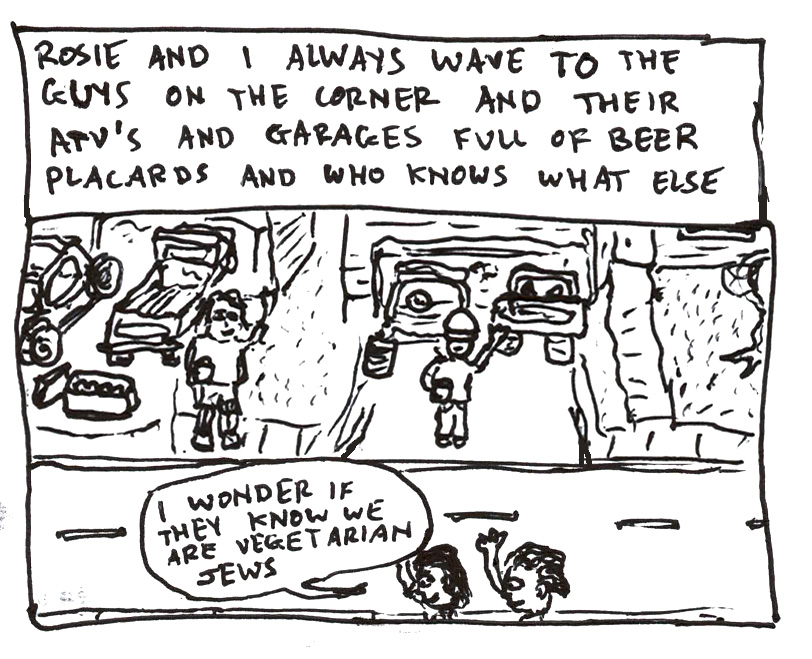 ROSIE AND I ALWAYS WAVE TO THE
GUYS ON THE CORNER AND THEIR
ATV'S AND GARAGES FULL OF BEER
PLACARDS AND WHO KNOWS WHAT ELSE
I WONDER IF
THEY KNOW WE
ARE VEGETARIAN
JEWS